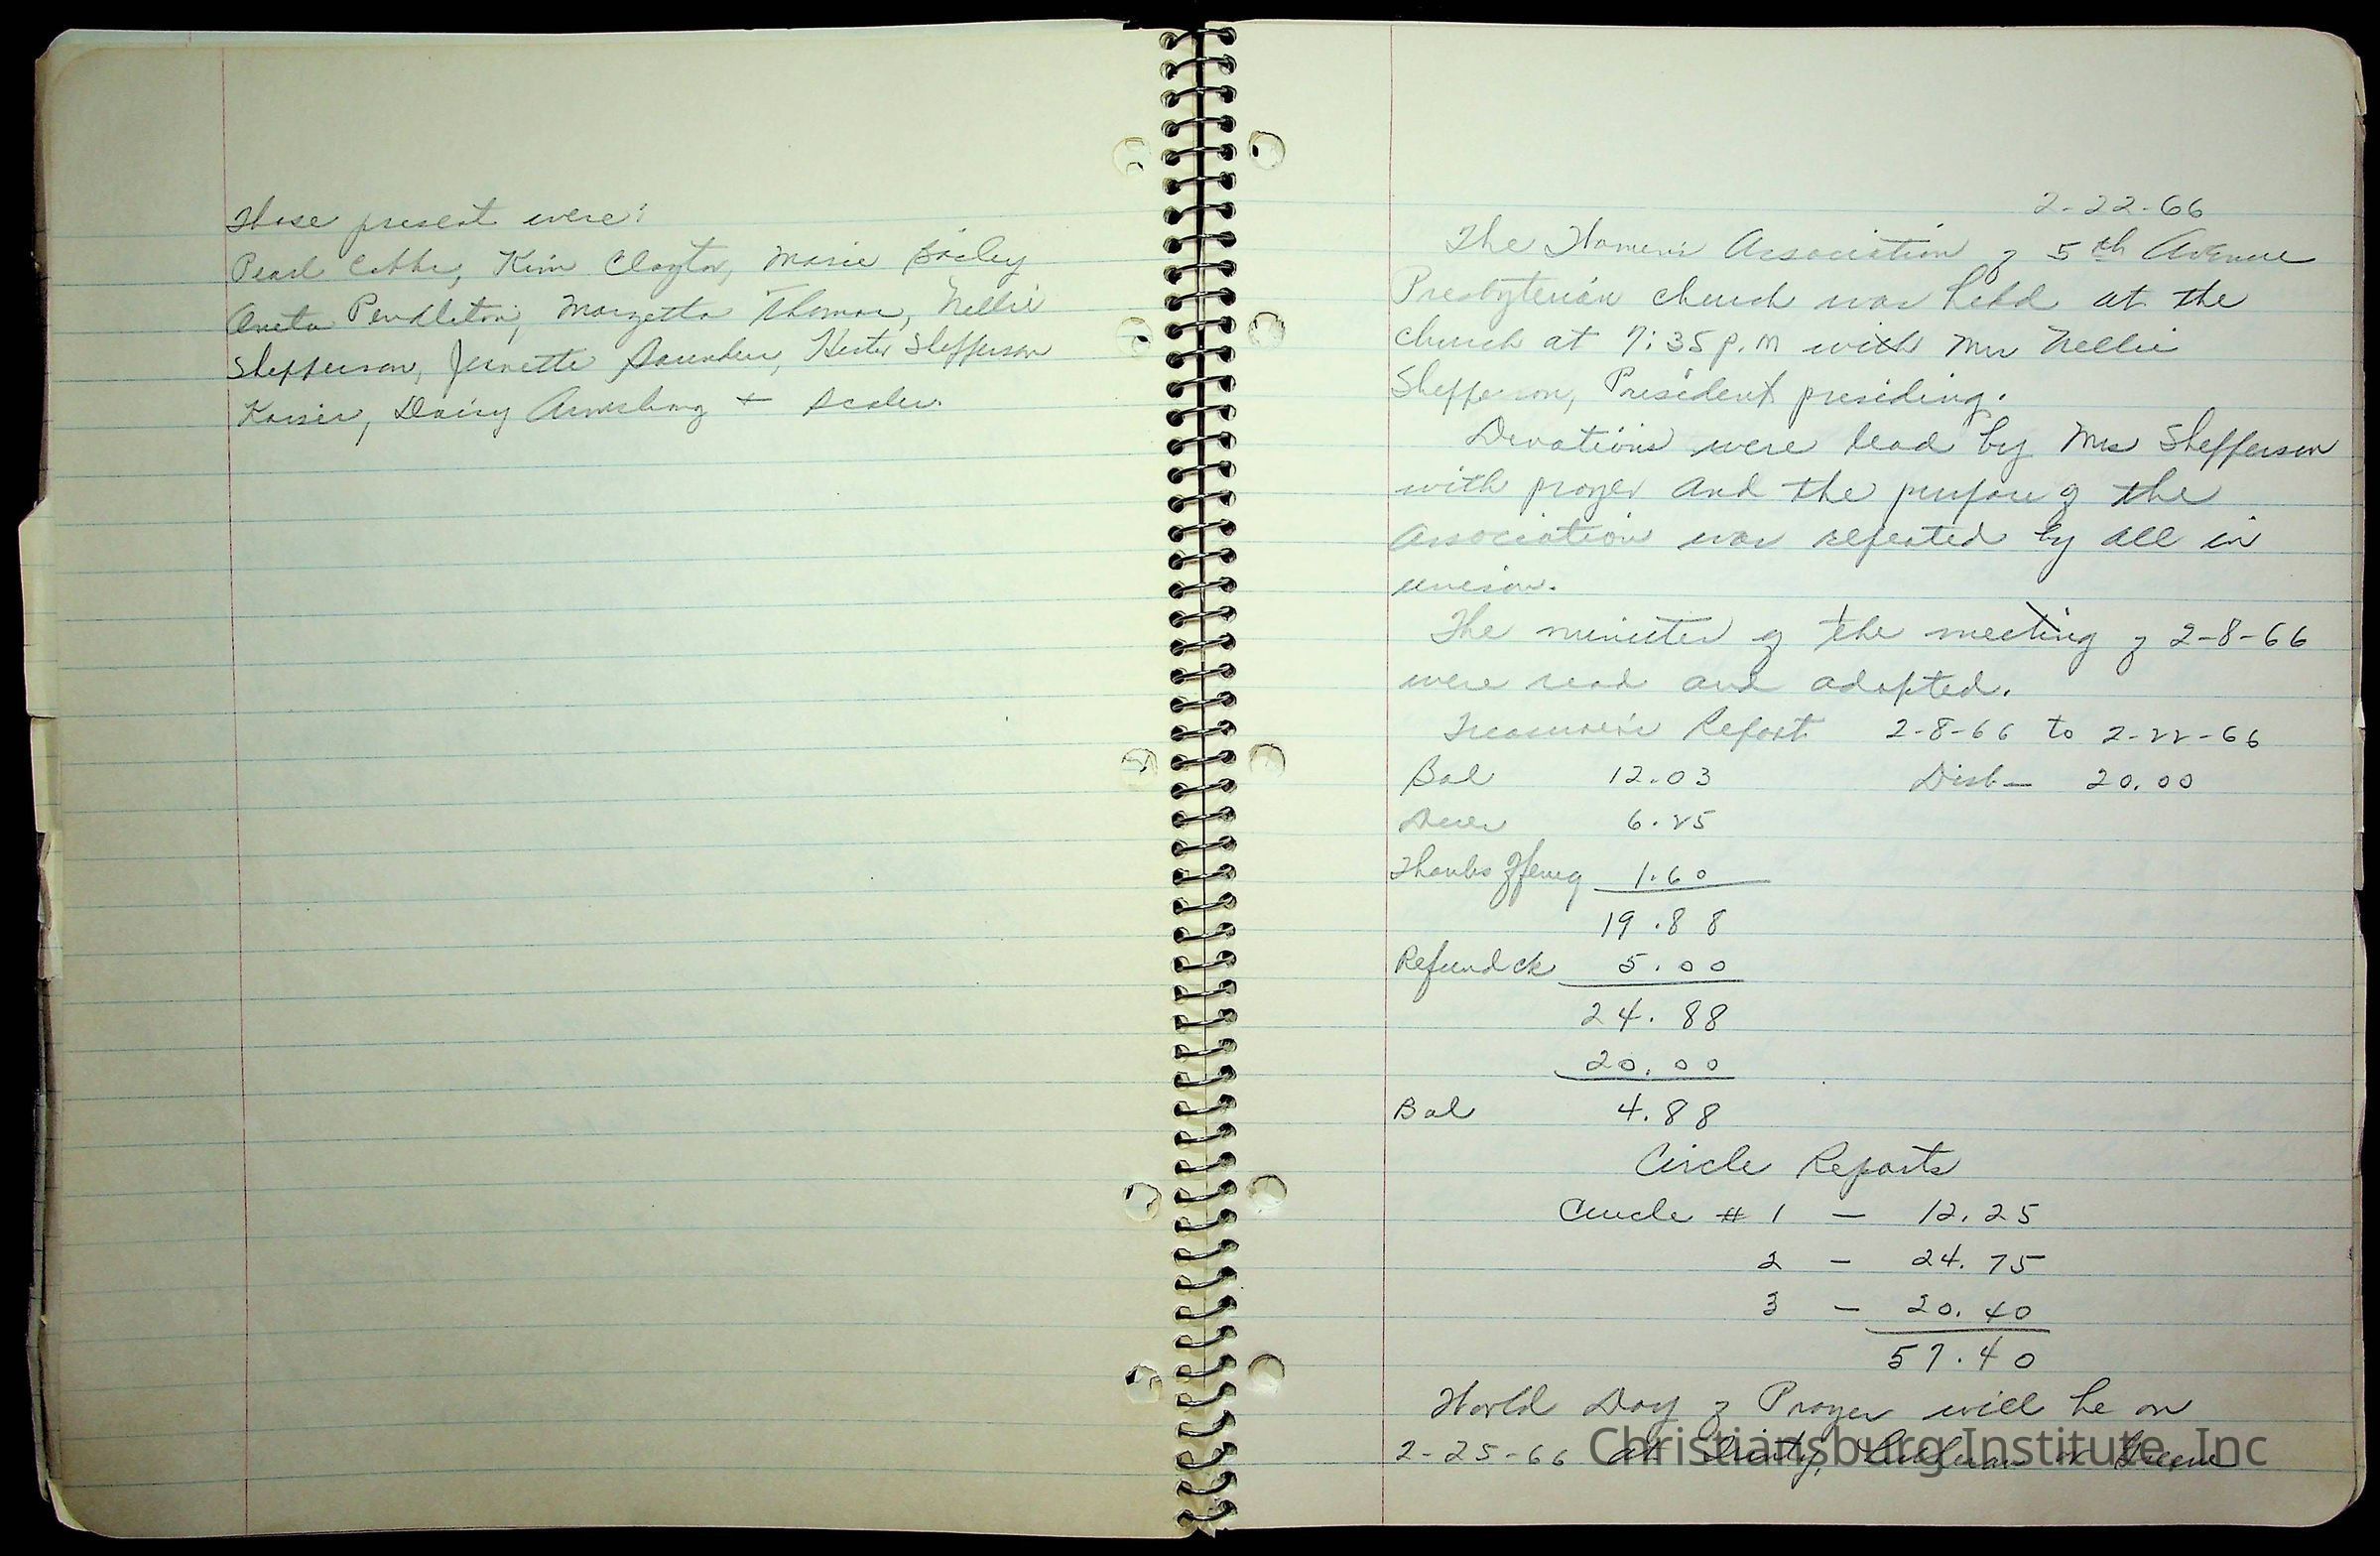 Those present were:
Pearl Cobbs, Kim Clayton, Marie Bailey
Aneta Pendleton, Marzetta Thomas, Nellie
Shefferson, Jeanette Saunders, Hester Shefferson
Kaiser, Daisy Armstrong +
2-22-66
The Women's Association of 5th Avenue
Presbyterian church was held at the
church at 7:35 p.m with Mrs Nellie
Shefferson, President presiding.
Devotions were lead by Mrs Shefferson
with prayer and the purpose of the
Association was repeated by all in
unison.
The minutes of the meeting of 2-8-66
were read and adopted.
Treasurer's Report 2-8-66 to 2-22-66
Bal 12.03 Disb — 20.00
6.25
Thanks offering 1.60
19.88
Refund ck 5.00
24.88
20.00
Bal 4.88
Circle Reports
Circle # 1 — 12.25
2 — 24.75
3 — 20.40
57.40
World Day of Prayer will be on
2-25-66 at Trinity,
Christiansburg Institute, Inc